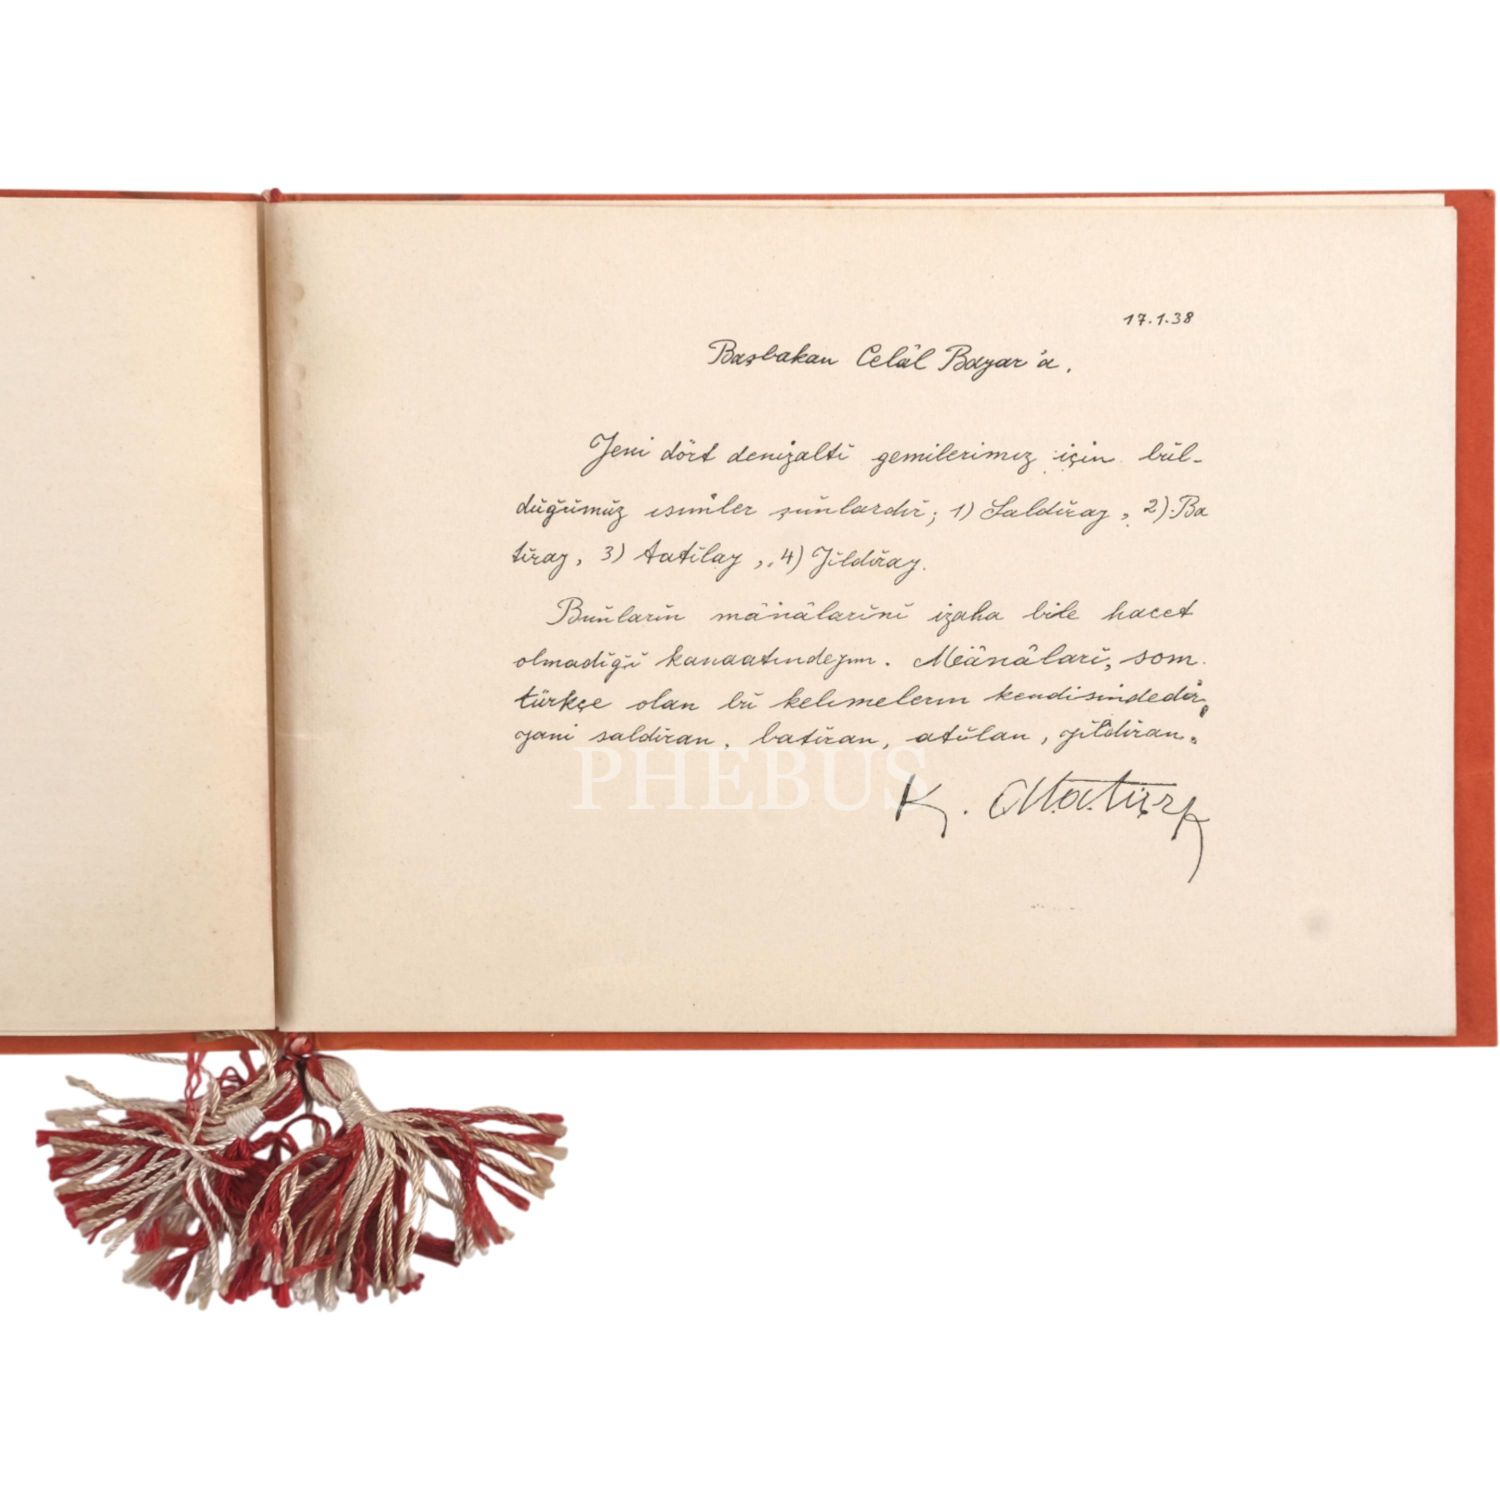 17.1.38
Başbakan Celâl Bayar'a.
Yeni dört denizaltı gemilerimiz için bul-
duğumuz isimler şunlardır; 1) Saldıray, 2) Ba
tıray, 3) Aatılay, 4) Yıldıray.
Bunların mânâlarını izaha bile hacet
olmadığı kanaatındeyim. Mânâları, som
türkçe olan bu kelimelerin kendisindedir,
yani saldıran, batıran, atılan, yıldıran.
PHEBUS
K. Atatürk